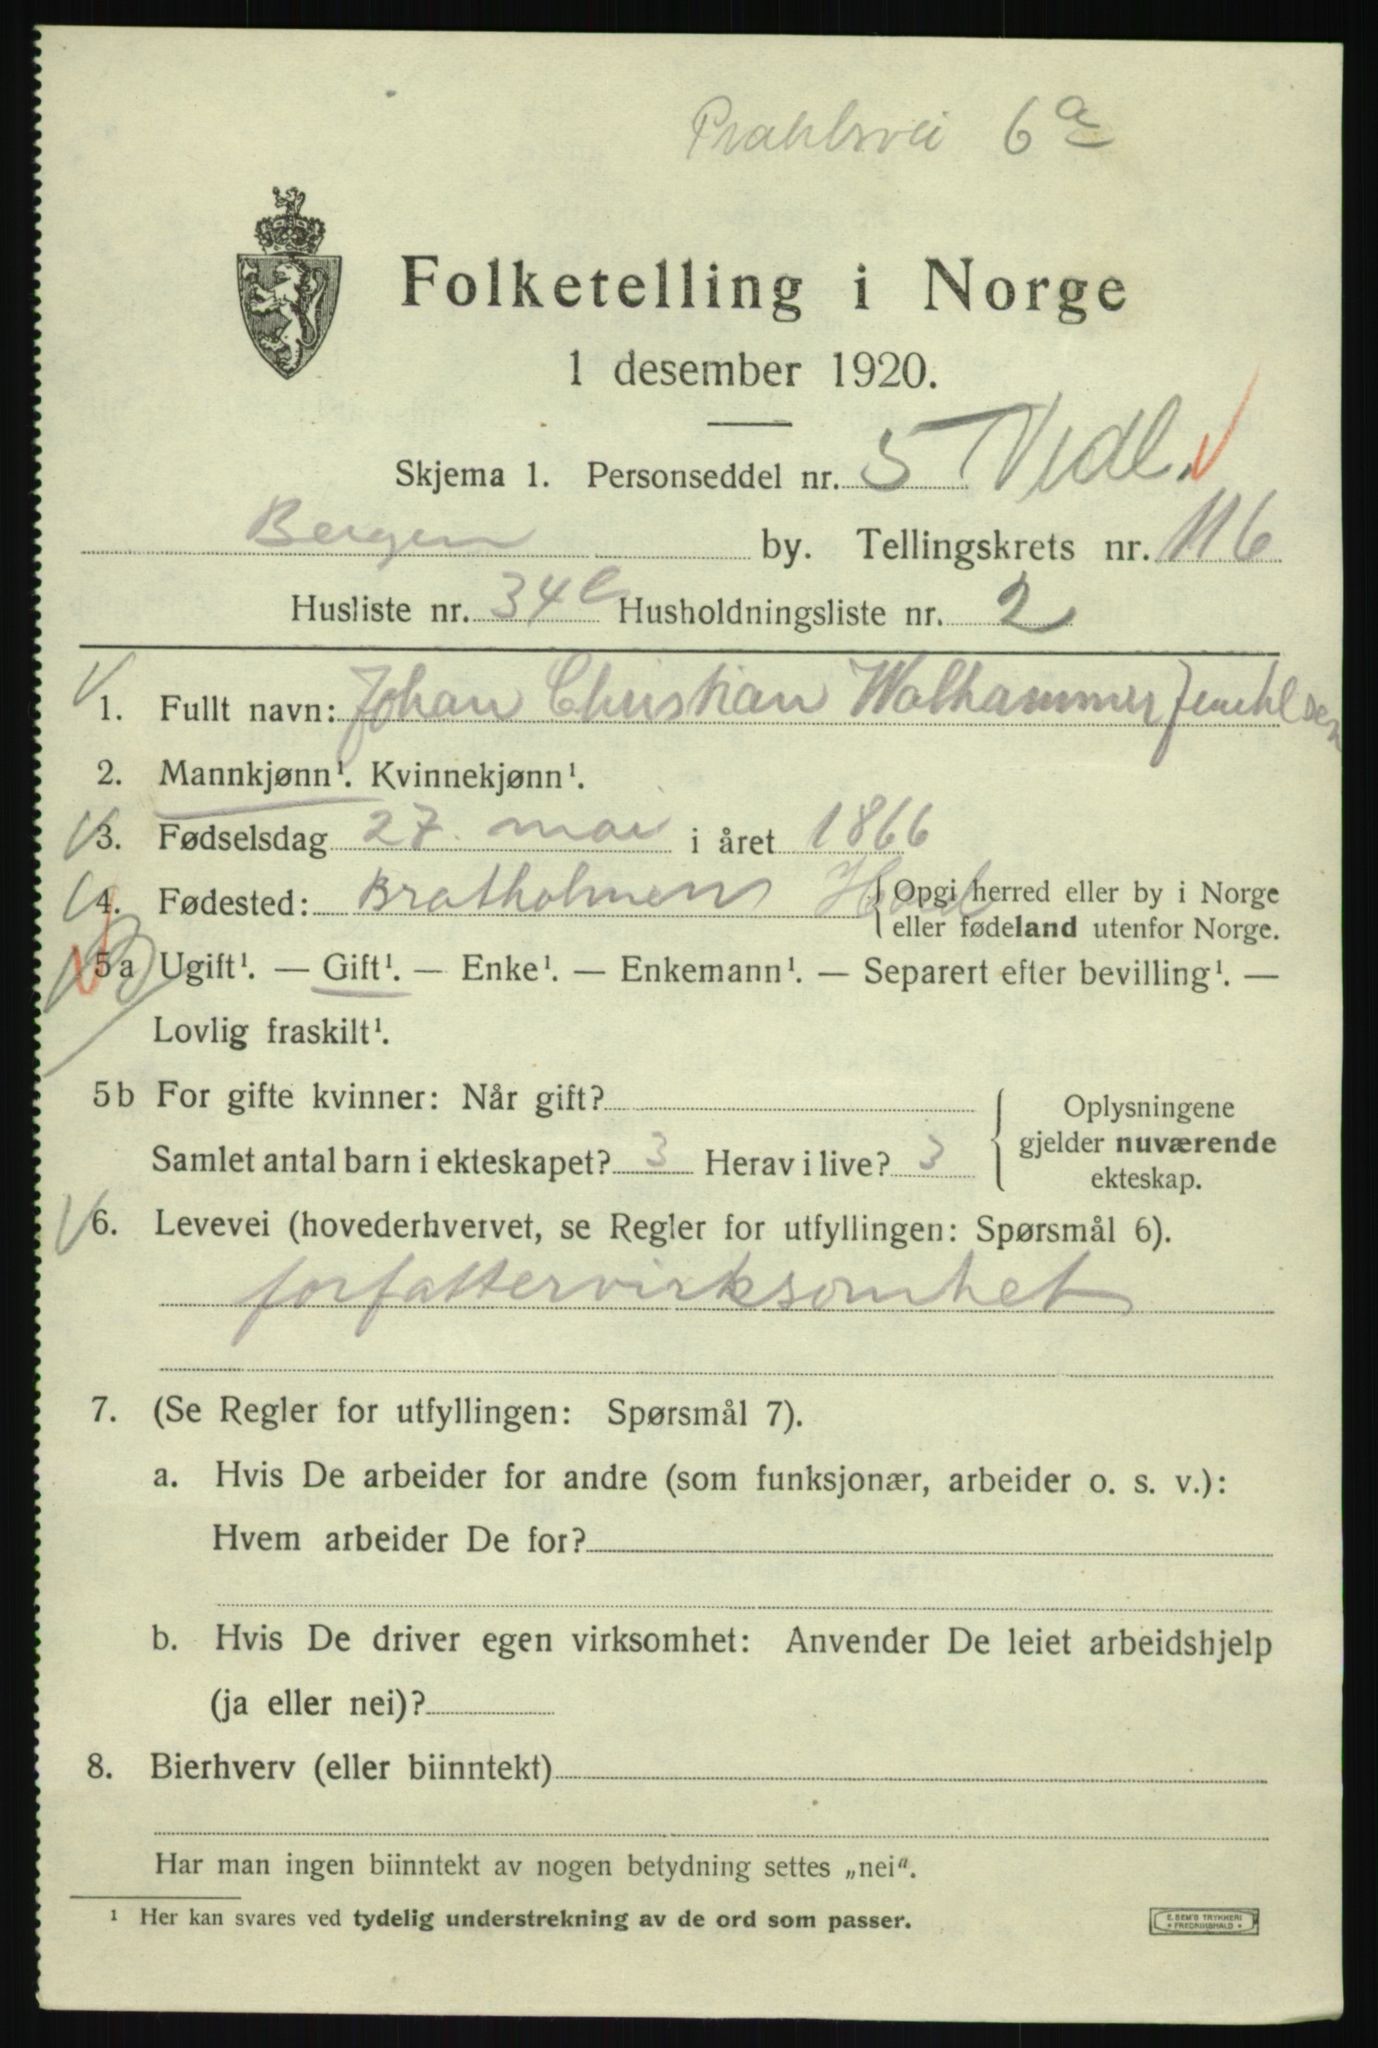 Prahlsvei 6a
Folketelling i Norge
1 desember 1920.
Skjema 1. Personseddel nr. 5 Vedl.
Bergen by. Tellingskrets nr. 116
Husliste nr. 34 Husholdningsliste nr. 2
1. Fullt navn: Johan Christian Walhammer
2. Mannkjønn¹. Kvinnekjønn¹.
3. Fødselsdag 27. mai i året 1866
4. Fødested: Bratholmen Hord { Opgi herred eller by i Norge
eller fødeland utenfor Norge.
5a Ugift¹. — Gift¹. — Enke¹. — Enkemann¹. — Separert efter bevilling¹. —
Lovlig fraskilt¹.
5b For gifte kvinner: Når gift?
Samlet antal barn i ekteskapet? 3 Herav i live? 3
Oplysningene
gjelder nuværende
ekteskap.
6. Levevei (hovederhvervet, se Regler for utfyllingen: Spørsmål 6).
forfattervirksomhet
7. (Se Regler for utfyllingen: Spørsmål 7).
a. Hvis De arbeider for andre (som funksjonær, arbeider o. s. v.):
Hvem arbeider De for?
b. Hvis De driver egen virksomhet: Anvender De leiet arbeidshjelp
(ja eller nei)?
8. Bierhverv (eller biinntekt)
Har man ingen biinntekt av nogen betydning settes „nei“.
¹ Her kan svares ved tydelig understrekning av de ord som passer.
E. SEM'S TRYKKERI
* FREDRIKSHALD *